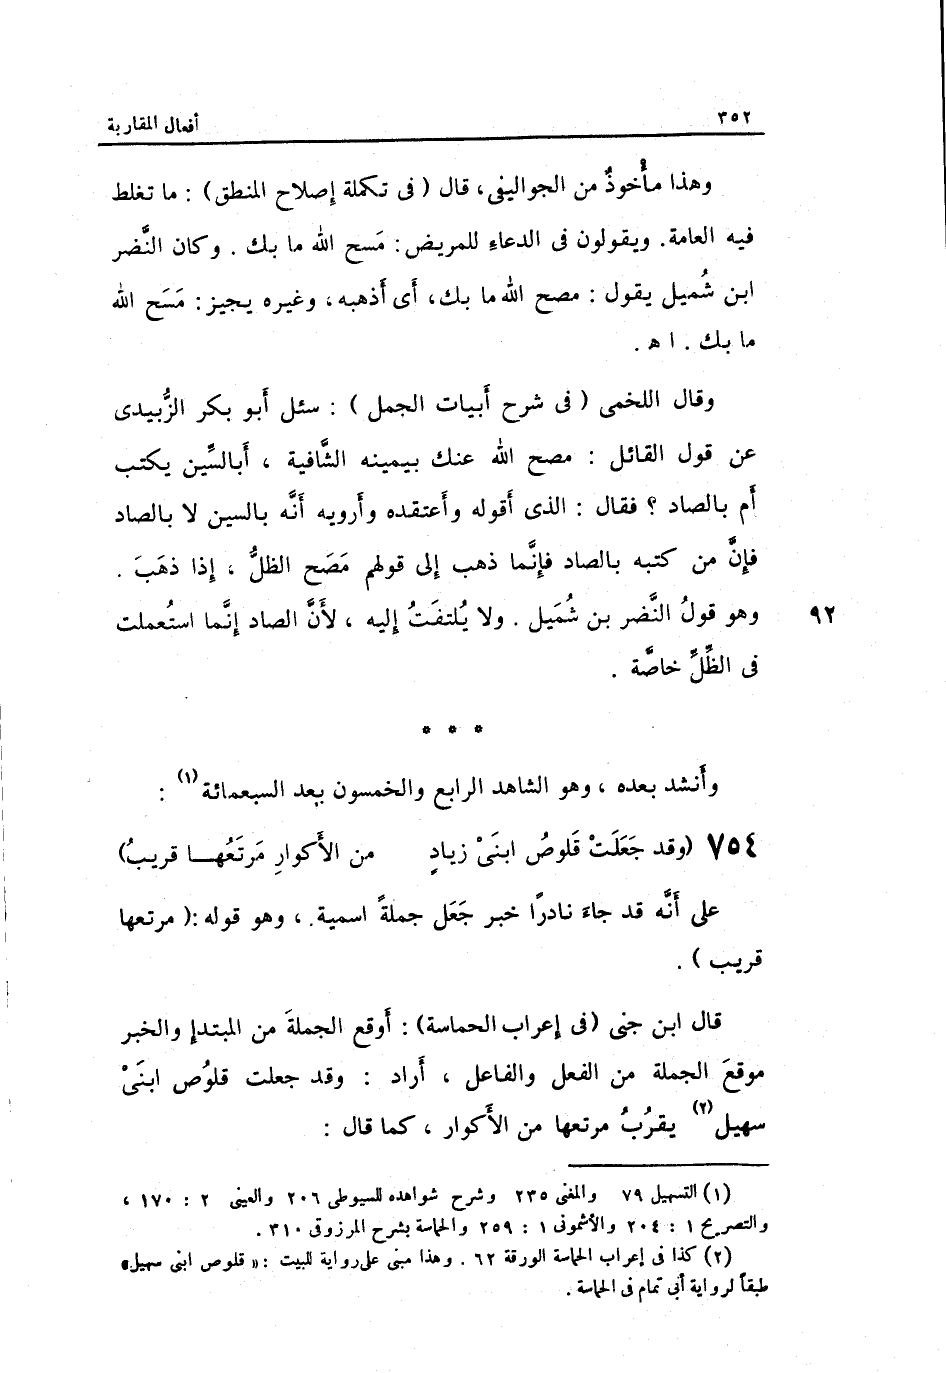 ٣٥٢ أفعال المقاربة
وهذا مأْخوذٌ من الجواليقى، قال ( فى تكملة إصلاح المنطق ) : ما تغلط
فيه العامة. ويقولون فى الدعاءِ للمريض: مَسح الله ما بك . وكان النَّضر
ابن شُميل يقول : مصح الله ما بك، أَى أَذهبه، وغيره يجيز: مَسَح الله
ما بك . ا ه .
وقال اللخمى ( فى شرح أَبيات الجمل ) : سئل أَبو بكر الزُّبيدى
عن قول القائل : مصح الله عنك بيمينه الشَّافية ، أَبالسِّين يكتب
أَم بالصاد ؟ فقال : الذى أَقوله وأَعتقده وأَرويه أَنَّه بالسين لا بالصاد
فإِنَّ من كتبه بالصاد فإِنَّما ذهب إِلى قولهم مَصَح الظلُّ ، إِذا ذهَبَ .
وهو قولُ النَّضر بن شُمَيل . ولا يُلتفَتُ إِليه ، لأَنَّ الصاد إِنَّما استُعملت ٩٢
فى الظِّلِّ خاصَّة .
* * *
وأَنشد بعده ، وهو الشاهد الرابع والخمسون بعد السبعمائة (١) :
٧٥٤ (وقد جَعَلَتْ قَلوصُ ابنَىْ زيادٍ من الأَكوارِ مَرتَعُهـا قريبُ)
على أَنَّه قد جاءَ نادرًا خبر جَعَل جملةً اسمية. ، وهو قوله :( مرتعها
قريب ) .
قال ابن جنى (فى إعراب الحماسة) : أَوقع الجملةَ من المبتدإِ والخبر
موقعَ الجملة من الفعل والفاعل ، أَراد : وقد جعلت قلوُص ابنَىْ
سهيل (٢) يقرُبُ مرتعها من الأَكوار ، كما قال :
(١) التسهيل ٧٩ والمغنى ٢٣٥ وشرح شواهده للسيوطى ٢٠٦ والعينى ٢ : ١٧٠ ،
والتصريح ١ : ٢٠٤ والأشمونى ١ : ٢٥٩ والحماسة بشرح المرزوقى ٣١٠ .
(٢) كذا فى إعراب الحماسة الورقة ٦٢ . وهذا مبنى على رواية للبيت : « قلوص ابنى سهيل »
طبقاً لرواية أبى تمام فى الحماسة .